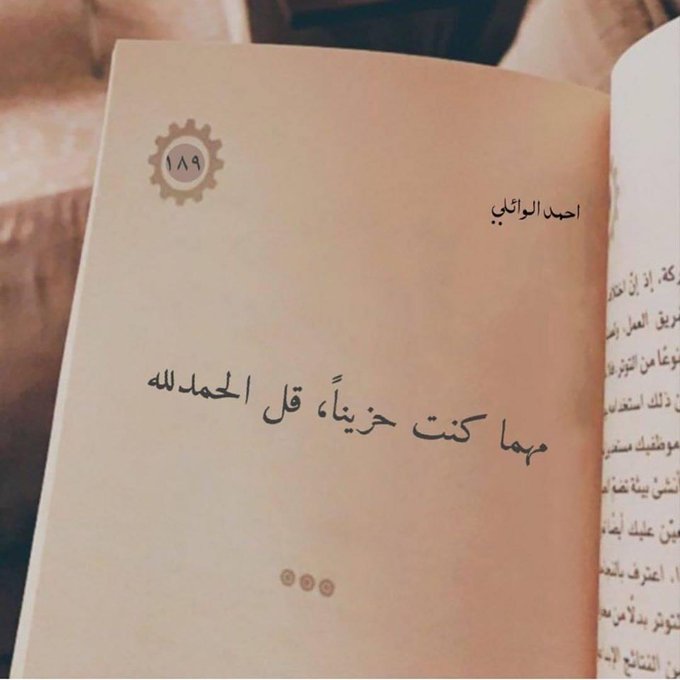 ١٨٩
احمد الوائلي
مهما كنت حزيناً، قل الحمدلله
ركة، إذ إنّ
فريق العمل،
نوعًا من التوتر
ن ذلك استخدام
موظفيك
أنشئ بيئة تضم
عيّن عليك أيضًا
ا، اعترف
التوتر بدلًا من
من النتائج